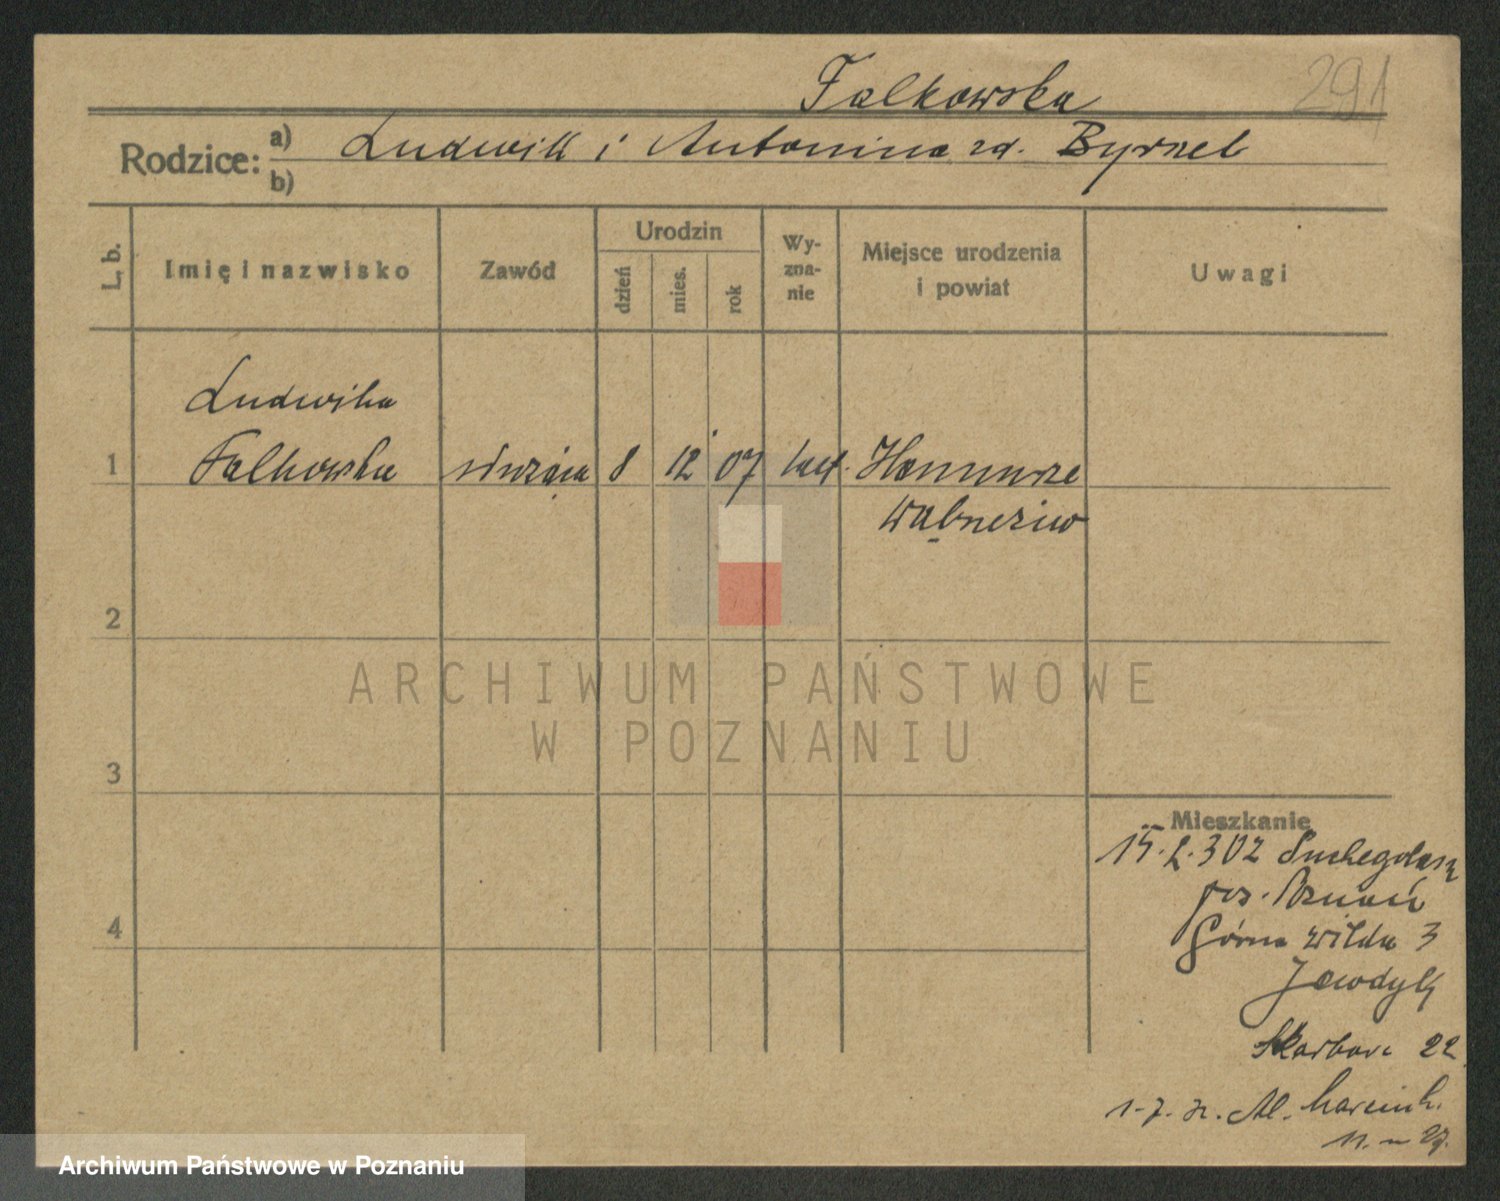 Falkowska 291
Rodzice: a) Ludwik i Antonina zd. Byrzel
b)
L. b. Imię i nazwisko Zawód Urodzin Wy-zna-nie Miejsce urodzenia i powiat Uwagi
dzień mies. rok
Ludwika
1 Falkowska służąca 8 12 07 kat.
2
3
4
Mieszkanie
15.2.30 z
Górna Wilda 3
Skarbowa 22
1.7.31. Al. Marcink.
11. – 27.
ARCHIWUM PAŃSTWOWE
W POZNANIU
Archiwum Państwowe w Poznaniu